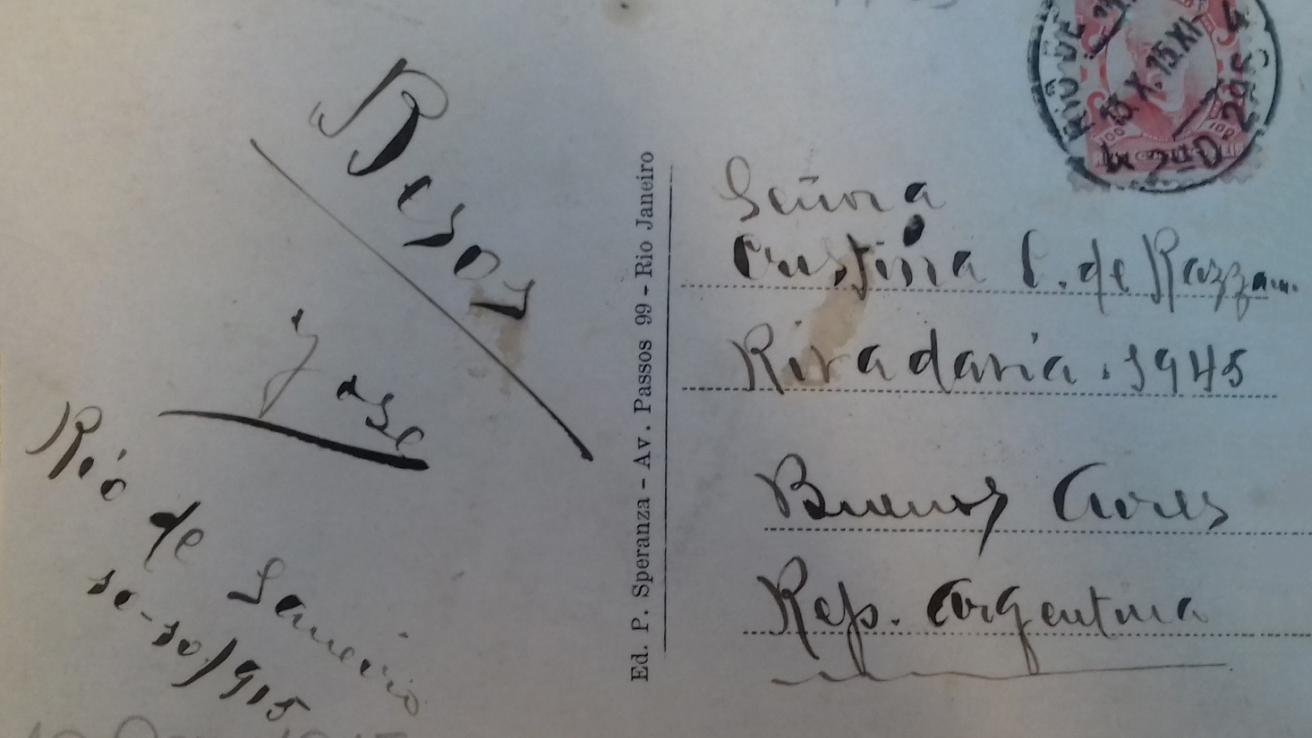 Besos
José
Rio de Janeiro
10-10/915
Ed. P. Speranza - Av. Passos 99 - Rio Janeiro
RIO DE
13 X 15 XI
4 2ª D. 296
100 100
Señora
Cristina C. de
Rivadavia. 1945
Buenos Aires
Rep. Argentina